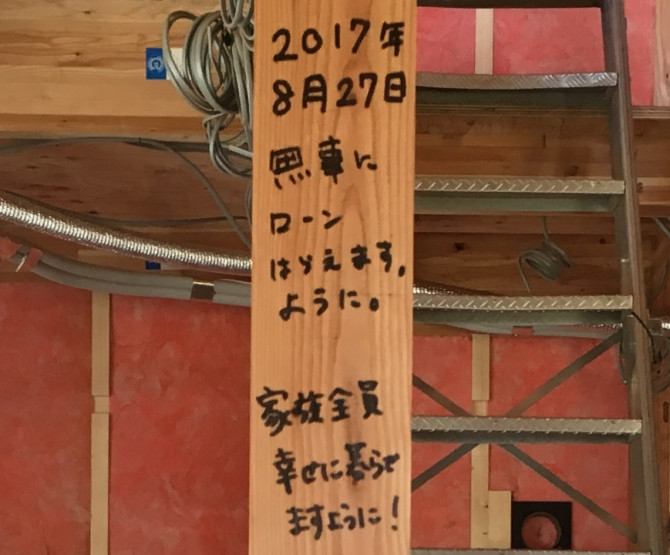 2017年
8月27日
無事に
ローン
はらえます。
ように。
家族全員
幸せに暮らせ
ますように!